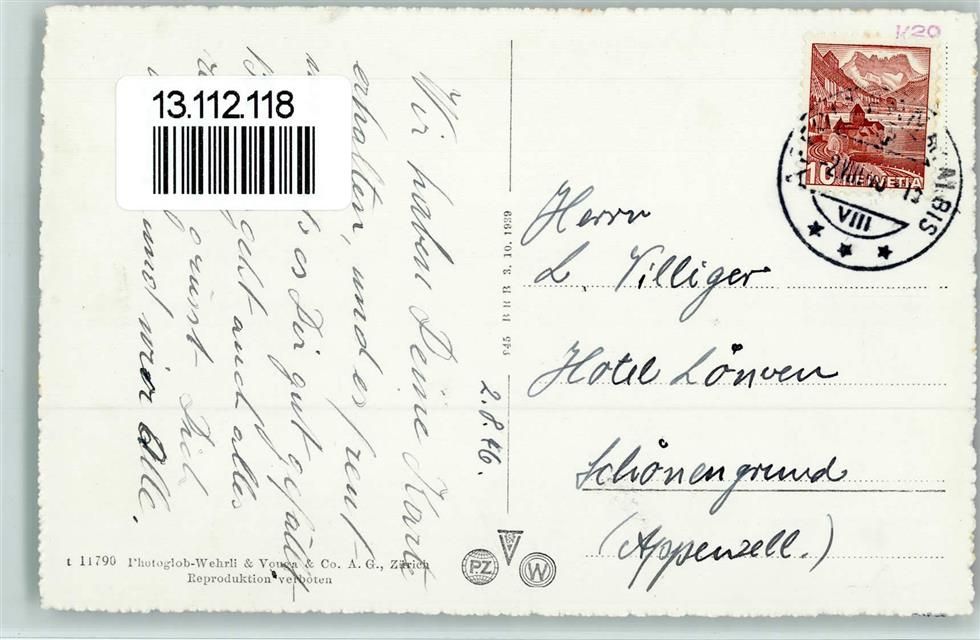 K20
13.112.118
Wir haben Deine Karte
erhalten, und es freut
es Dir gut gefällt
geht auch alles
grüsst Dich
und wir Alle.
2.8.46.
945 B R B 3. 10. 1939
10 HELVETIA
ALBIS
VIII
Herrn
L. Villiger
Hotel Löwen
Schönengrund
(Appenzell.)
PZ
W
t 11790 Photoglob-Wehrli & Vouga & Co. A. G., Zürich
Reproduktion verboten